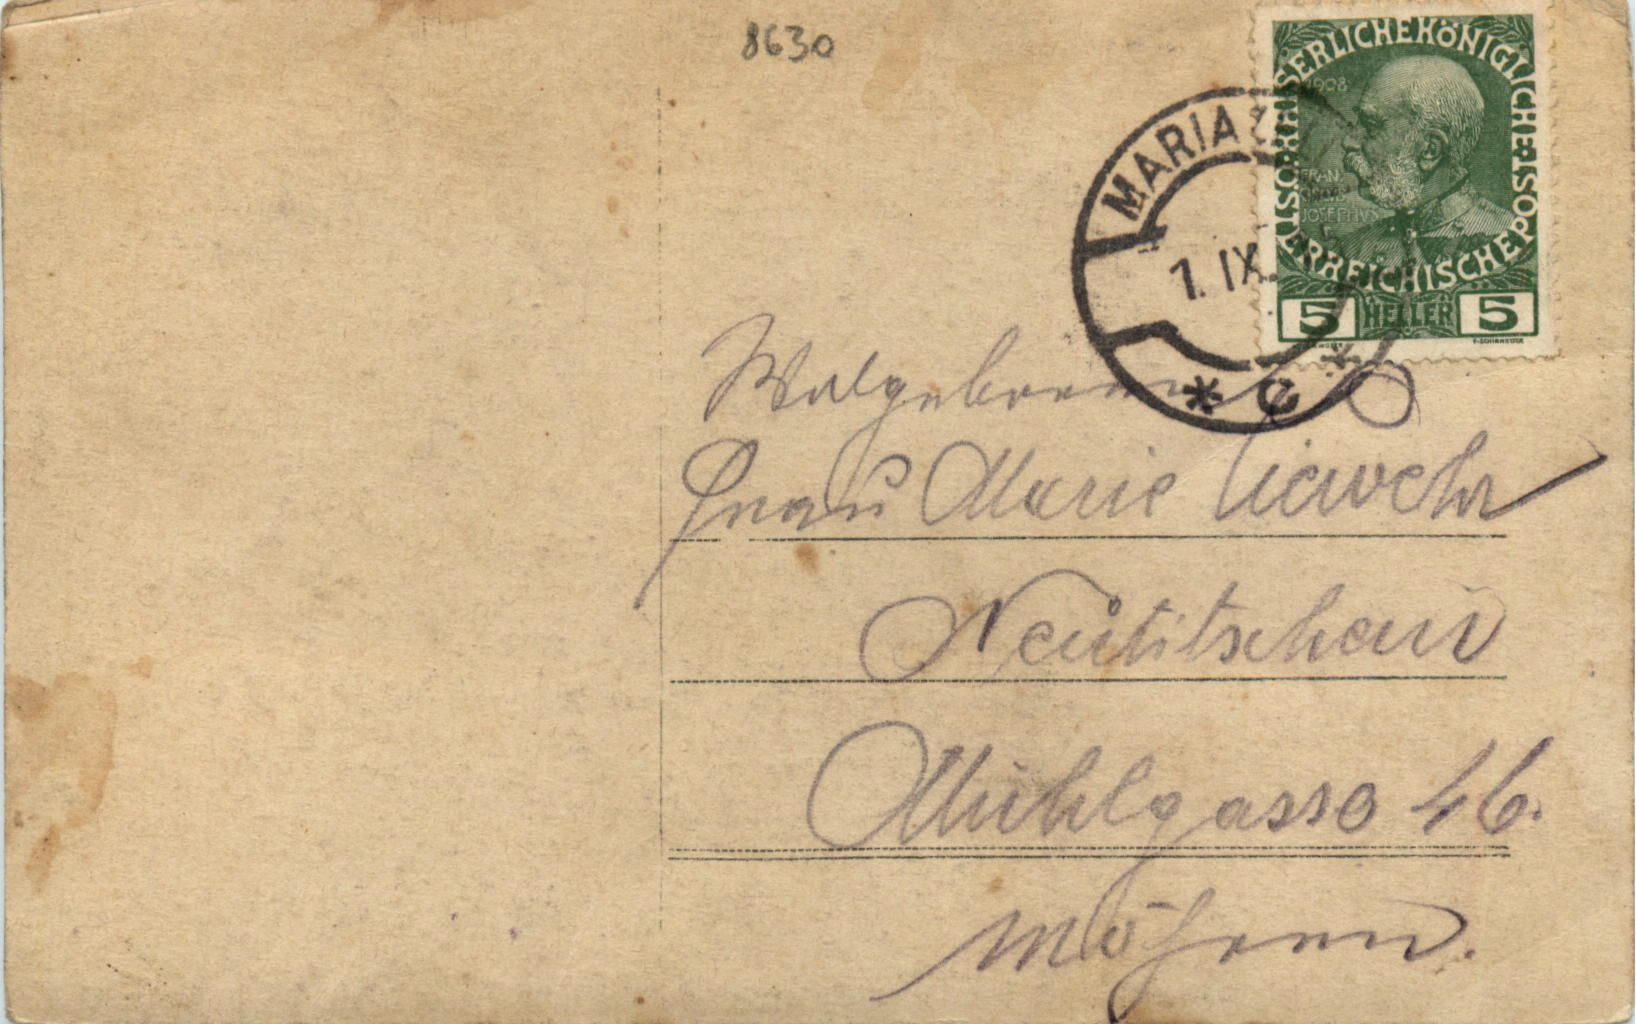 8630
KAISERLICHEKÖNIGLICHE ÖSTERREICHISCHE POST
1908
FRANZ
JOSEPHVS
5 HELLER 5
MARIAZ
1. IX.
* c *
Wolgeboren
Frau Marie
Neutitschein
Mühlgasse 46.
Mähren.